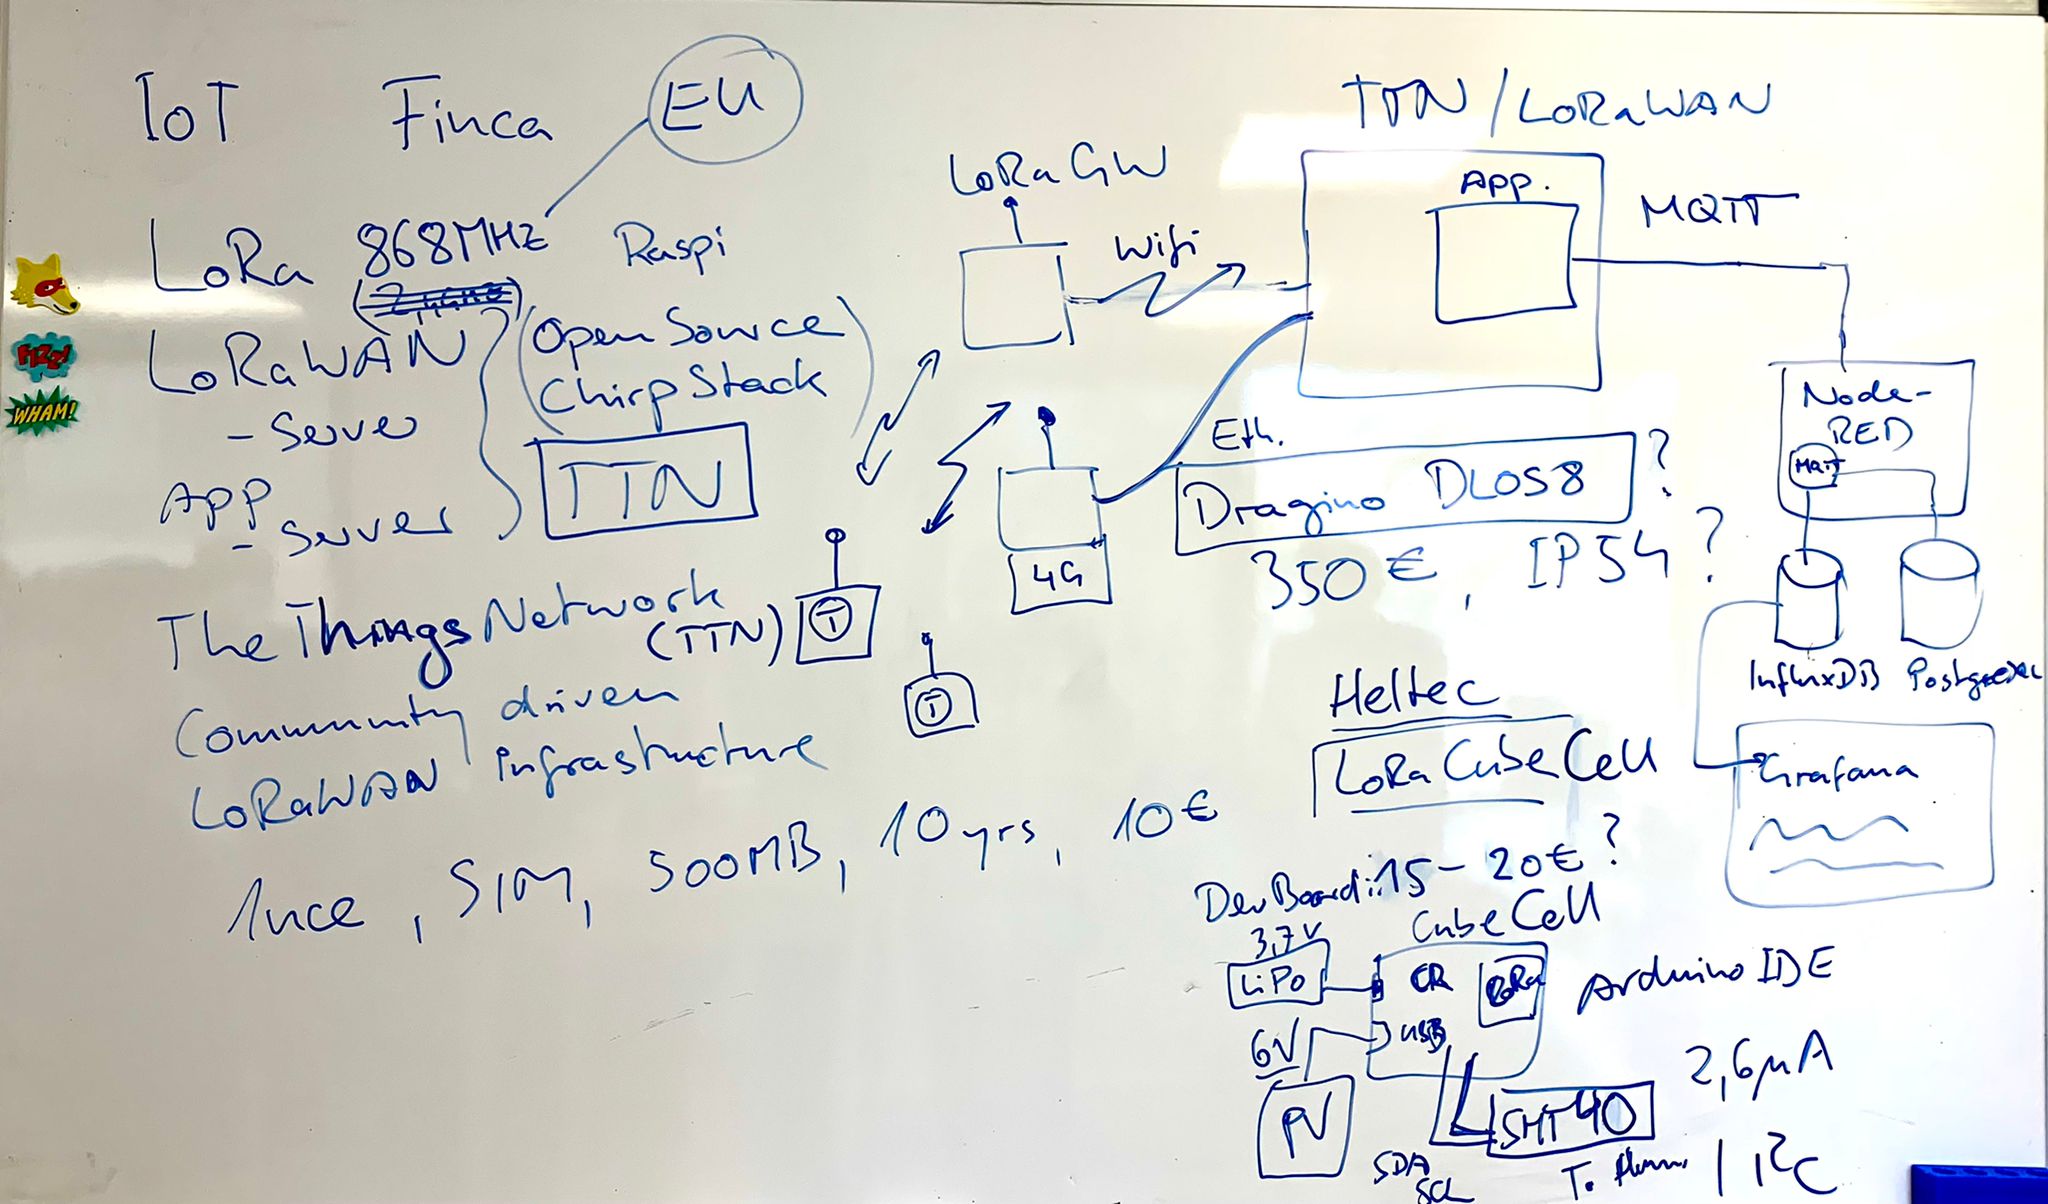 IoT Finca EU
LoRa 868MHz Raspi
LoRaWAN
- Server
App
- Server
(Open Source
ChirpStack)
TTN
The Things Network
(TTN)
Community driven
LoRaWAN infrastructure
1nce, SIM, 500MB, 10yrs, 10€
LoRa GW
Wifi
T
T
4G
Eth.
TTN/LORaWAN
App.
MQTT
Node-
RED
MQTT
InfluxDB
Grafana
Dragino DLOS8 ?
350€, IP54 ?
Heltec
LoRa CubeCell
DevBoard: 15-20€ ?
CubeCell
3,7V
LiPo
LoRa
Arduino IDE
6V
USB
PV
SHT40
2,6µA
SDA
SCL
I²C